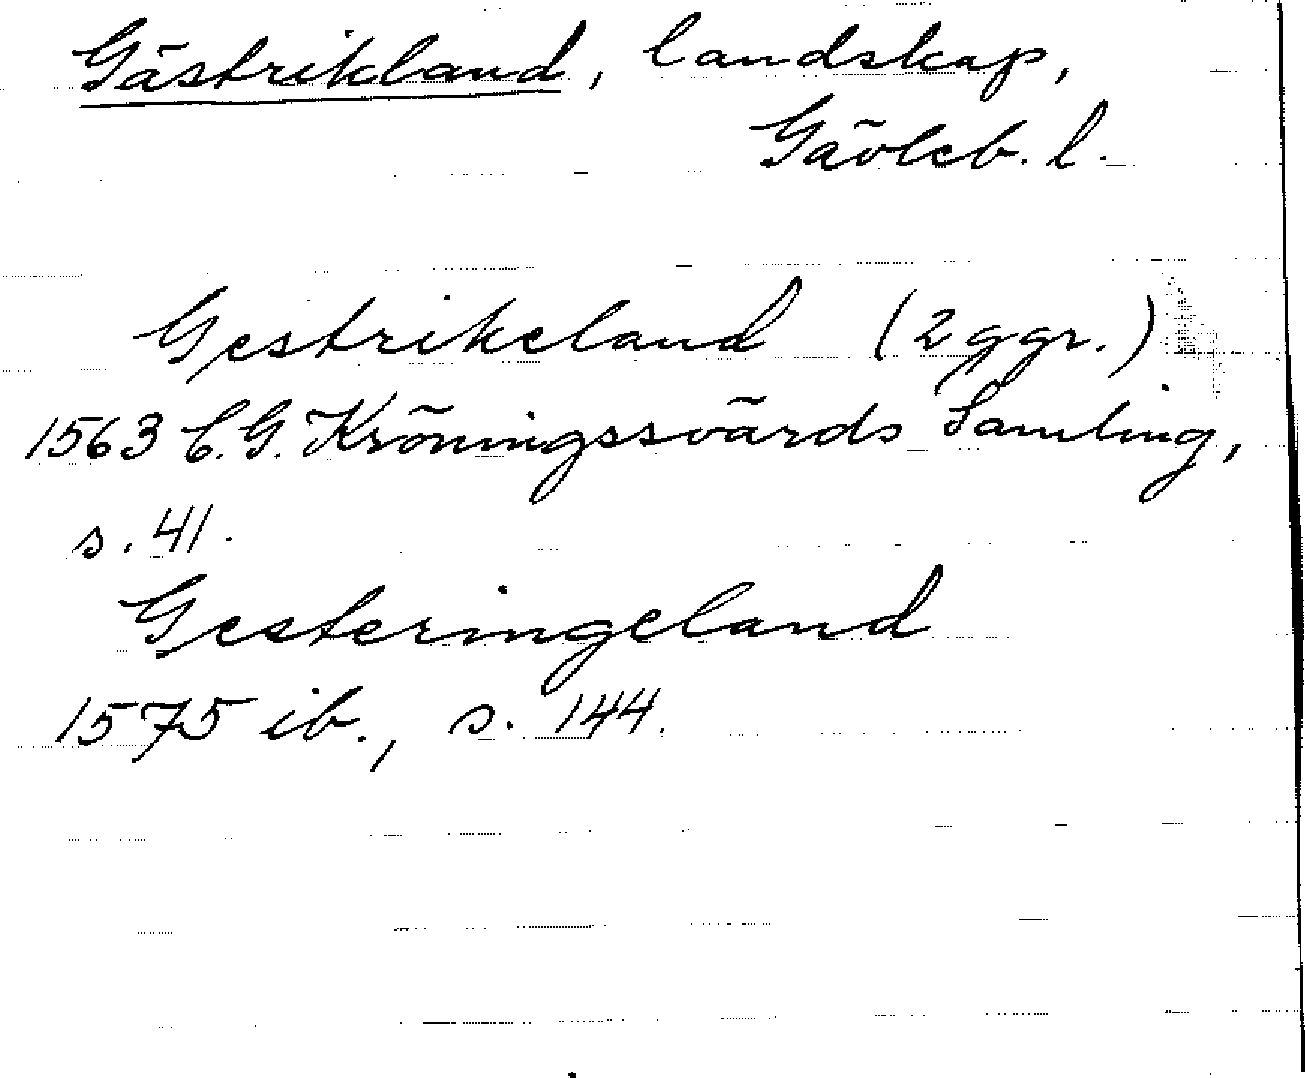 Gästrikland, landskap,
Gävleb. l.
Gestrikeland (2 ggr.)
1563 C.G. Kröningssvärds Samling,
s. 41.
Gesteringeland
1575 ib., s. 144.